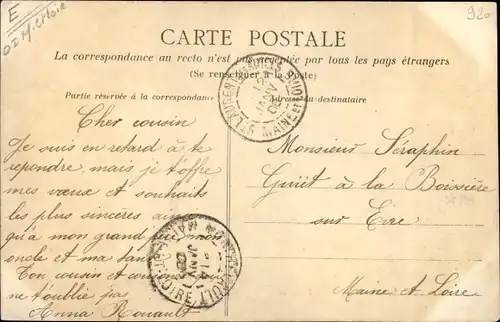 E
92
CARTE POSTALE
La correspondance au recto n'est pas acceptée par tous les pays étrangers
(Se renseigner à la Poste)
Partie réservée à la correspondance
Adresse du destinataire
Cher cousin
Je suis en retard à te
repondre, mais je t'offre
mes voeux et souhaits
les plus sincères
qu'à mon grand
onclé et ma
Ton cousin et
ne t'oublié pas
Anna Rouault
Monsieur Séraphin
à la Boissière
sur Evre
Maine et Loire
MAINE ET
JANV
LOIRE